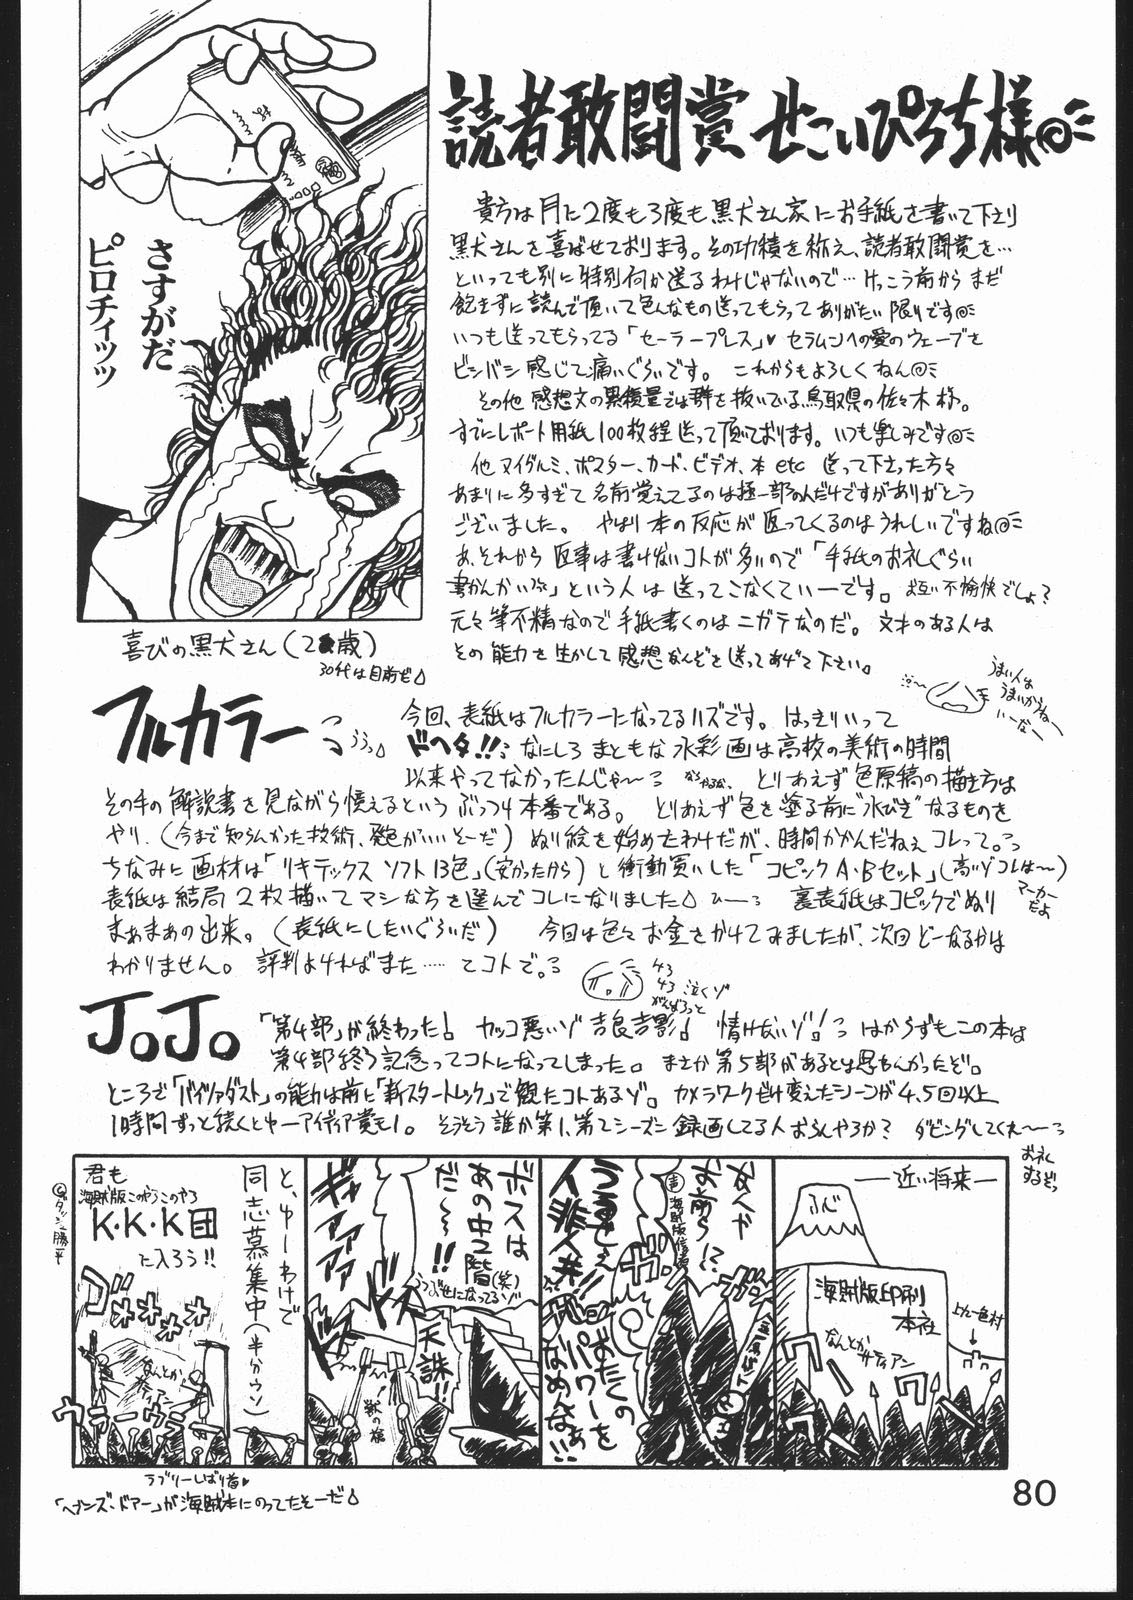 読者敢闘賞 せこいぴろち様
さすがだ
ピロチィッッ
喜びの黒犬さん(2 歳)
30代は目前だ
貴方は月に2度も3度も黒犬さん家にお手紙を書いて下さり
黒犬さんを喜ばせております。その功積を称え、読者敢闘賞を…
といっても別に特別何か送るわけじゃないので…けっこう前からまだ
飽きずに読んで頂いて色んなもの送ってもらってありがたい限りです
いつも送ってもらってる「セーラープレス」♥セラムンへの愛のウェーブを
ビシバシ感じて痛いぐらいです。これからもよろしくねん
その他感想文の累積量では群を抜いている鳥取県の佐々木様。
すでにレポート用紙100枚程送って頂いております。いつも楽しみです
他ヌイグルミ、ポスター、カード、ビデオ、本etc 送って下さった方々
あまりに多すぎて名前覚えてるのは極一部のんだけですがありがとう
ございました。やはり本の反応が返ってくるのはうれしいですね
あ、それから返事は書けないコトが多いので「手紙のお礼ぐらい
書かんかい」という人は送ってこなくていーです。お互い不愉快でしょ?
元々筆不精なので手紙書くのはニガテなのだ。文才のある人は
その能力を生かして感想なんぞを送ってあげて下さい。
うまい人は
うまいからねー
いーなー
フルカラー
ううっ
今回、表紙はフルカラーになってるハズです。はっきりいって
ドヘタ!!なにしろまともな水彩画は高校の美術の時間
以来やってなかったんじゃ〜 とりあえず色原稿の描き方は
その手の解説書を見ながら憶えるというぶっつけ本番である。とりあえず色を塗る前に"水びき"なるものを
やり、(今まで知らんかった技術、発色がいいそーだ)ぬり絵を始めたわけだが、時間かかんだねぇコレって。
ちなみに画材は「リキテックス ソフト13色」(安かったから)と衝動買いした「コピックA・Bセット」(高いゾコレは〜)
マーカーだよ
表紙は結局2枚描いてマシな方を選んでコレになりました ひーっ 裏表紙はコピックでぬり
まぁまぁの出来。(表紙にしたいぐらいだ) 今回は色々お金をかけてみましたが、次回どーなるかは
わかりません。評判よければまた……てコトで。
泣くゾ
JoJo
「第4部」が終わった! カッコ悪いゾ吉良吉影! 情けないゾ! はからずもこの本は
第4部終了記念ってコトになってしまった。まさか第5部があるとは思もんかったぞ。
ところで「バイツァダスト」の能力は前に「新スタートレック」で観たコトあるゾ。カメラワークだけ変えたシーンが4,5回以上
1時間ずっと続くとゆーアイディア賞モノ。そうそう誰か第1、第2シーズン録画してる人おらんやろか? ダビングしてくれ〜
お礼
するぞっ
―近い将来―
ふじ
海賊版印刷
本社
なんとか
サティアン
なんや
お前ら!?
海賊版信者
うるせえ
人非人共!!
おたくの
パワーを
なめんなぁ!!
ボスは
あの中2階(笑)
だ〜!!
天誅!!
ギャ
アアアア
と、ゆーわけで
同志募集中(半分ウソ)
君も
海賊版このやろこのやろ
K・K・K団
に入ろう!!
なんとか
サティアン
ウラーウラー
ラブリーしばり首♥
「ヘブンズ・ドアー」が海賊本にのってたそーだ
80